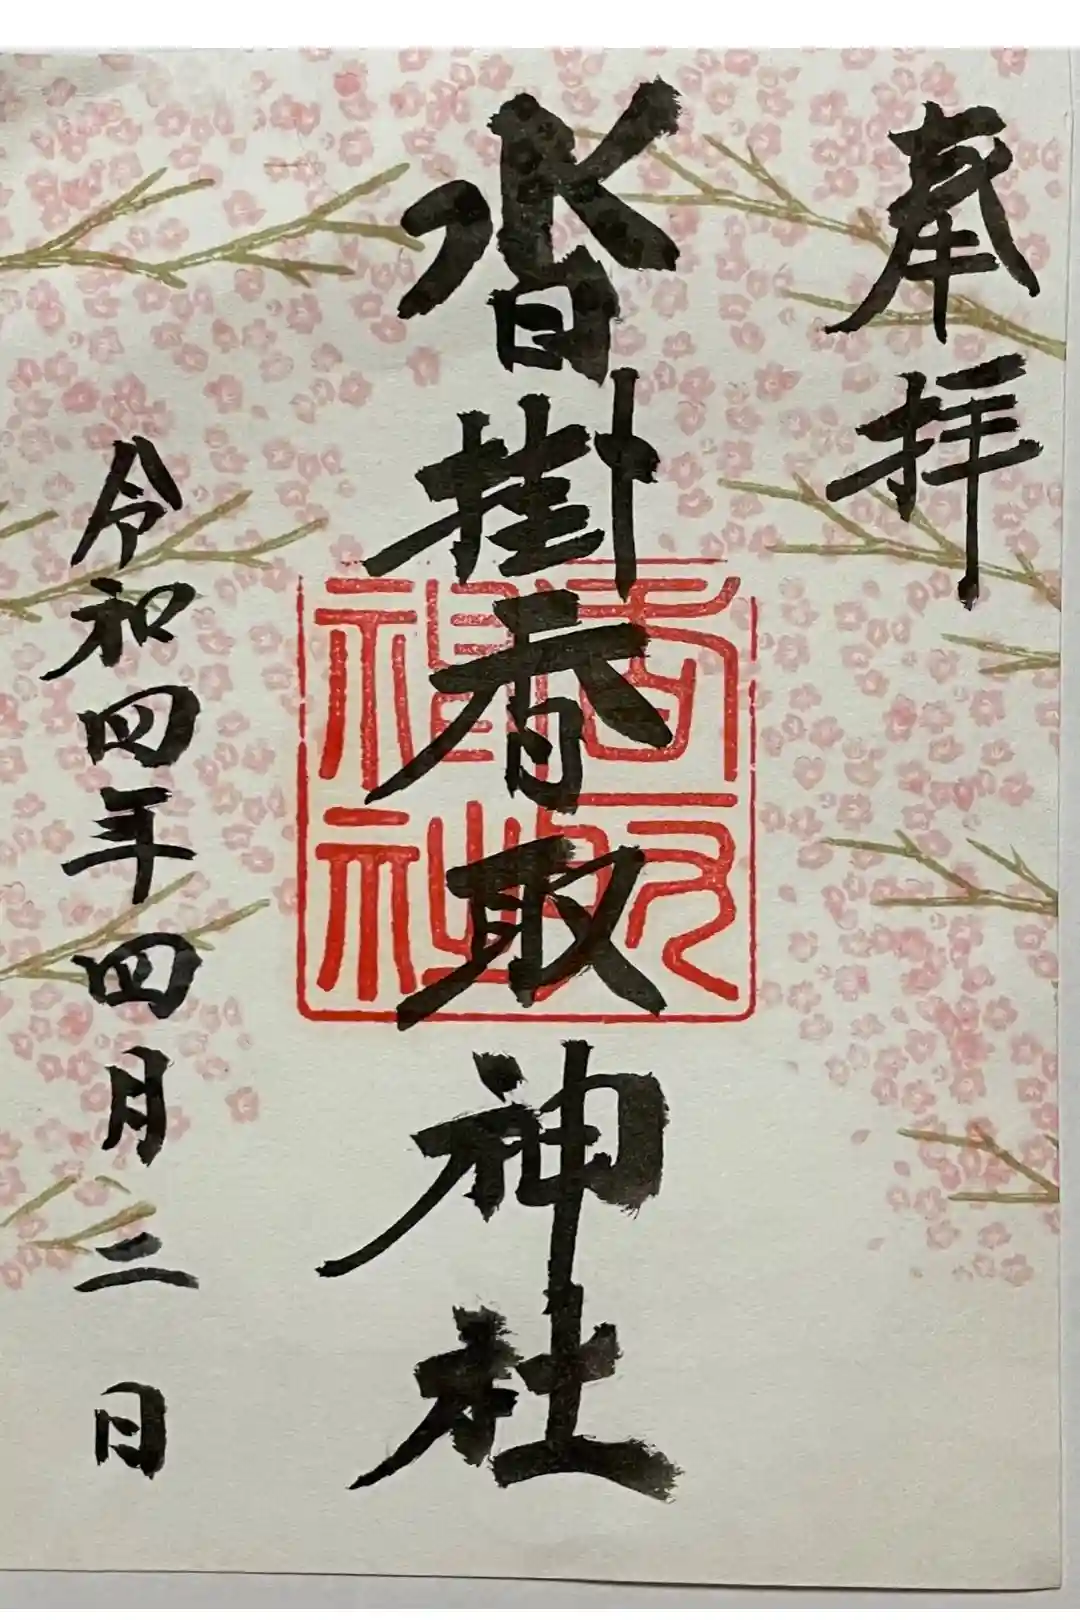 奉拝
沓掛香取神社
令和四年四月三日
香取
神社